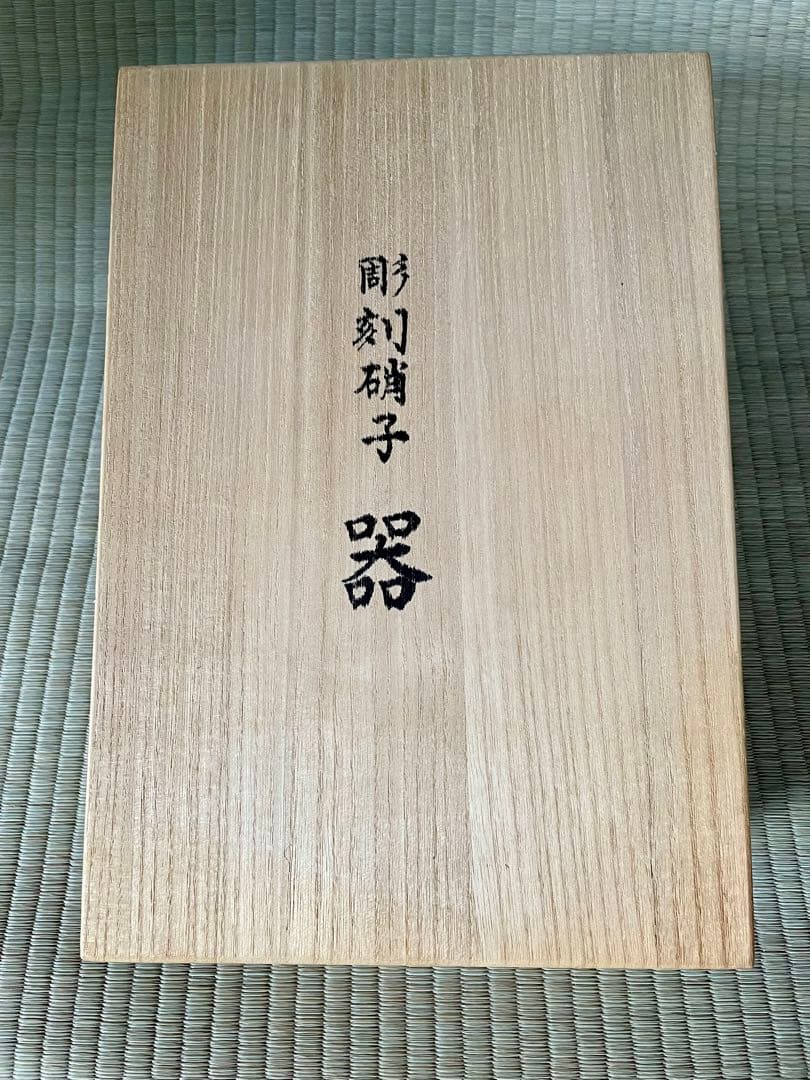 彫刻硝子 器